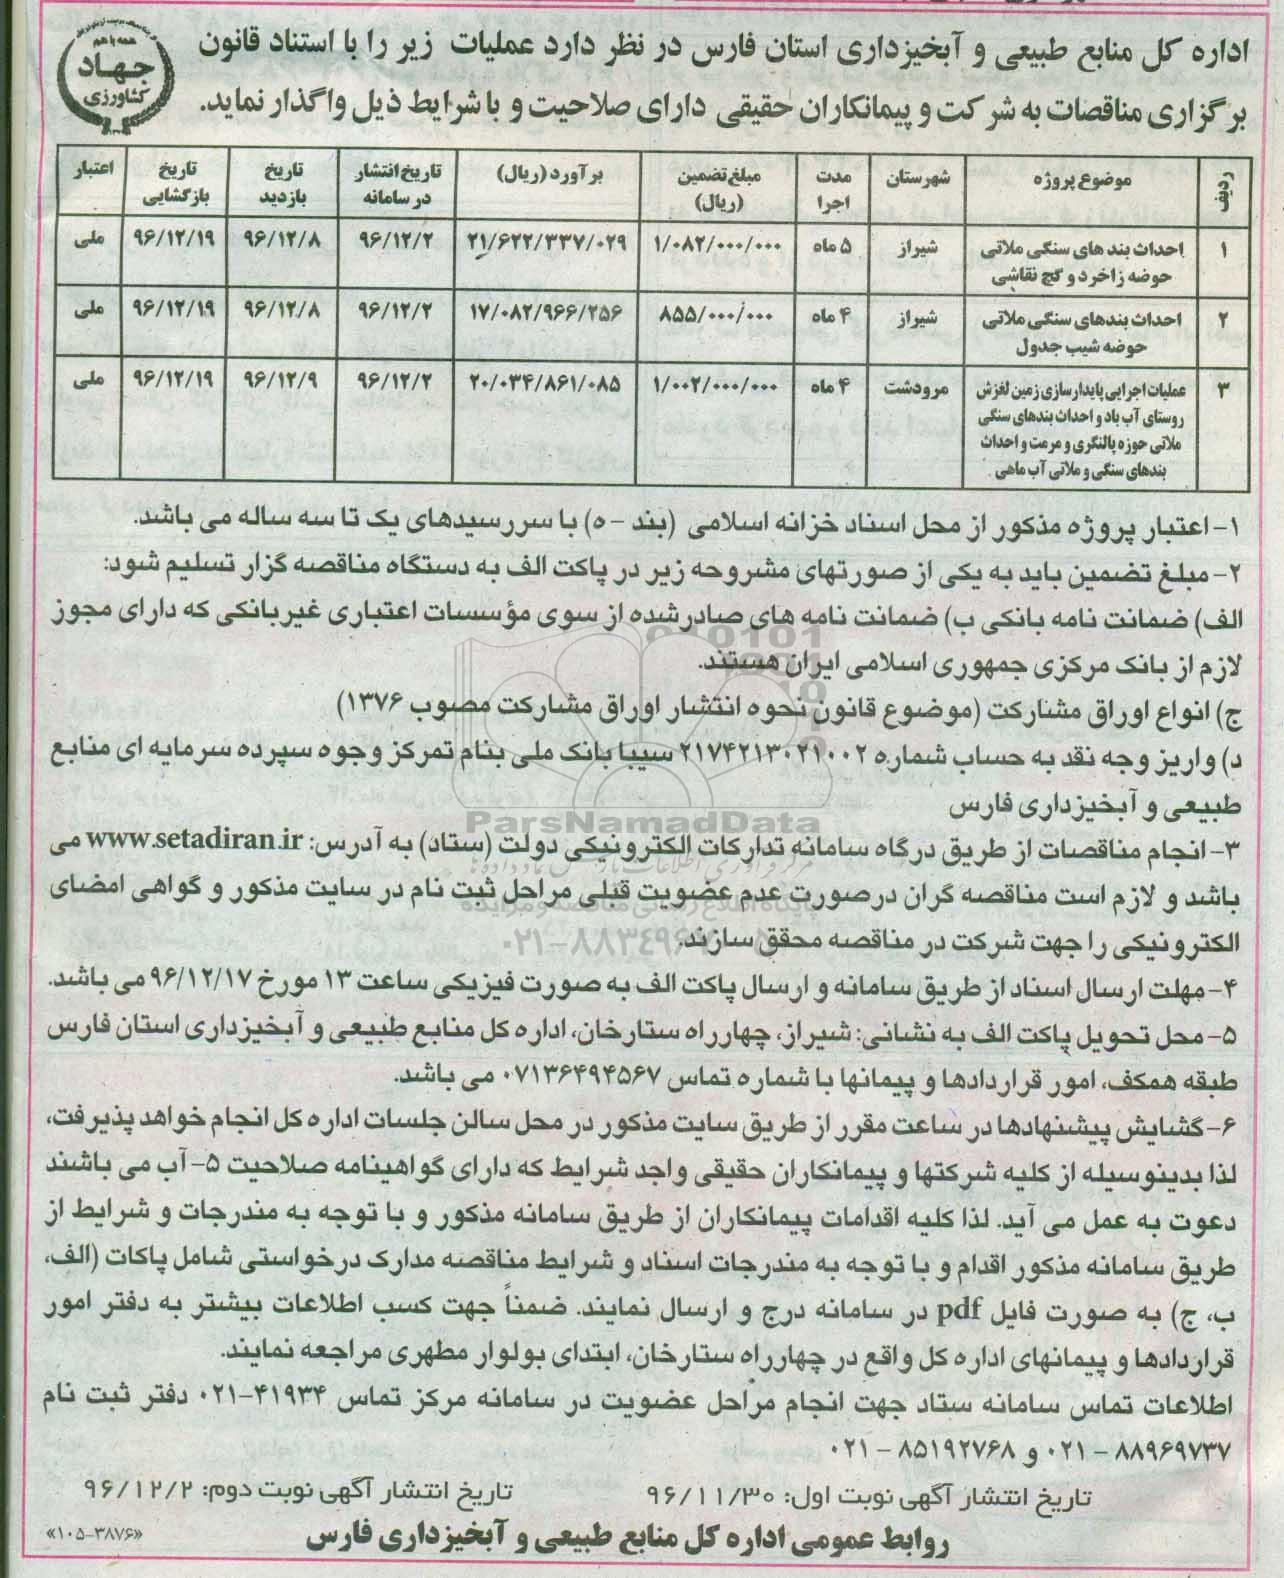 همه با هم
جهاد
کشاورزی
اداره کل منابع طبیعی و آبخیزداری استان فارس در نظر دارد عملیات زیر را با استناد قانون
برگزاری مناقصات به شرکت و پیمانکاران حقیقی دارای صلاحیت و با شرایط ذیل واگذار نماید.
ردیف | موضوع پروژه | شهرستان | مدت اجرا | مبلغ تضمین (ریال) | برآورد (ریال) | تاریخ انتشار در سامانه | تاریخ بازدید | تاریخ بازگشایی | اعتبار
۱ | احداث بند های سنگی ملاتی حوضه زاخرد و گچ نقاشی | شیراز | ۵ ماه | ۱/۰۸۲/۰۰۰/۰۰۰ | ۲۱/۶۲۲/۳۳۷/۰۲۹ | ۹۶/۱۲/۲ | ۹۶/۱۲/۸ | ۹۶/۱۲/۱۹ | ملی
۲ | احداث بندهای سنگی ملاتی حوضه شیب جدول | شیراز | ۴ ماه | ۸۵۵/۰۰۰/۰۰۰ | ۱۷/۰۸۲/۹۶۶/۲۵۶ | ۹۶/۱۲/۲ | ۹۶/۱۲/۸ | ۹۶/۱۲/۱۹ | ملی
۳ | عملیات اجرایی پایدارسازی زمین لغزش روستای آب باد و احداث بندهای سنگی ملاتی حوزه پالنگری و مرمت و احداث بندهای سنگی و ملاتی آب ماهی | مرودشت | ۴ ماه | ۱/۰۰۲/۰۰۰/۰۰۰ | ۲۰/۰۳۴/۸۶۱/۰۸۵ | ۹۶/۱۲/۲ | ۹۶/۱۲/۹ | ۹۶/۱۲/۱۹ | ملی
۱- اعتبار پروژه مذکور از محل اسناد خزانه اسلامی (بند - ه) با سررسیدهای یک تا سه ساله می باشد.
۲- مبلغ تضمین باید به یکی از صورتهای مشروحه زیر در پاکت الف به دستگاه مناقصه گزار تسلیم شود:
الف) ضمانت نامه بانکی ب) ضمانت نامه های صادرشده از سوی مؤسسات اعتباری غیربانکی که دارای مجوز
لازم از بانک مرکزی جمهوری اسلامی ایران هستند.
ج) انواع اوراق مشارکت (موضوع قانون نحوه انتشار اوراق مشارکت مصوب ۱۳۷۶)
د) واریز وجه نقد به حساب شماره ۲۱۷۴۲۱۳۰۲۱۰۰۲ سیبا بانک ملی بنام تمرکز وجوه سپرده سرمایه ای منابع
طبیعی و آبخیزداری فارس
ParsNamadData
۳- انجام مناقصات از طریق درگاه سامانه تدارکات الکترونیکی دولت (ستاد) به آدرس: www.setadiran.ir می
باشد و لازم است مناقصه گران درصورت عدم عضویت قبلی مراحل ثبت نام در سایت مذکور و گواهی امضای
الکترونیکی را جهت شرکت در مناقصه محقق سازند.
۴- مهلت ارسال اسناد از طریق سامانه و ارسال پاکت الف به صورت فیزیکی ساعت ۱۳ مورخ ۹۶/۱۲/۱۷ می باشد.
۵- محل تحویل پاکت الف به نشانی: شیراز، چهارراه ستارخان، اداره کل منابع طبیعی و آبخیزداری استان فارس
طبقه همکف، امور قراردادها و پیمانها با شماره تماس ۰۷۱۳۶۴۹۴۵۶۷ می باشد.
۶- گشایش پیشنهادها در ساعت مقرر از طریق سایت مذکور در محل سالن جلسات اداره کل انجام خواهد پذیرفت،
لذا بدینوسیله از کلیه شرکتها و پیمانکاران حقیقی واجد شرایط که دارای گواهینامه صلاحیت ۵- آب می باشند
دعوت به عمل می آید. لذا کلیه اقدامات پیمانکاران از طریق سامانه مذکور و با توجه به مندرجات و شرایط از
طریق سامانه مذکور اقدام و با توجه به مندرجات اسناد و شرایط مناقصه مدارک درخواستی شامل پاکات (الف،
ب، ج) به صورت فایل pdf در سامانه درج و ارسال نمایند. ضمناً جهت کسب اطلاعات بیشتر به دفتر امور
قراردادها و پیمانهای اداره کل واقع در چهارراه ستارخان، ابتدای بولوار مطهری مراجعه نمایند.
اطلاعات تماس سامانه ستاد جهت انجام مراحل عضویت در سامانه مرکز تماس ۴۱۹۳۴-۰۲۱ دفتر ثبت نام
۸۸۹۶۹۷۳۷ - ۰۲۱ و ۸۵۱۹۲۷۶۸ - ۰۲۱
تاریخ انتشار آگهی نوبت اول: ۹۶/۱۱/۳۰ تاریخ انتشار آگهی نوبت دوم: ۹۶/۱۲/۲
روابط عمومی اداره کل منابع طبیعی و آبخیزداری فارس
«۱۰۵-۳۸۷۶»